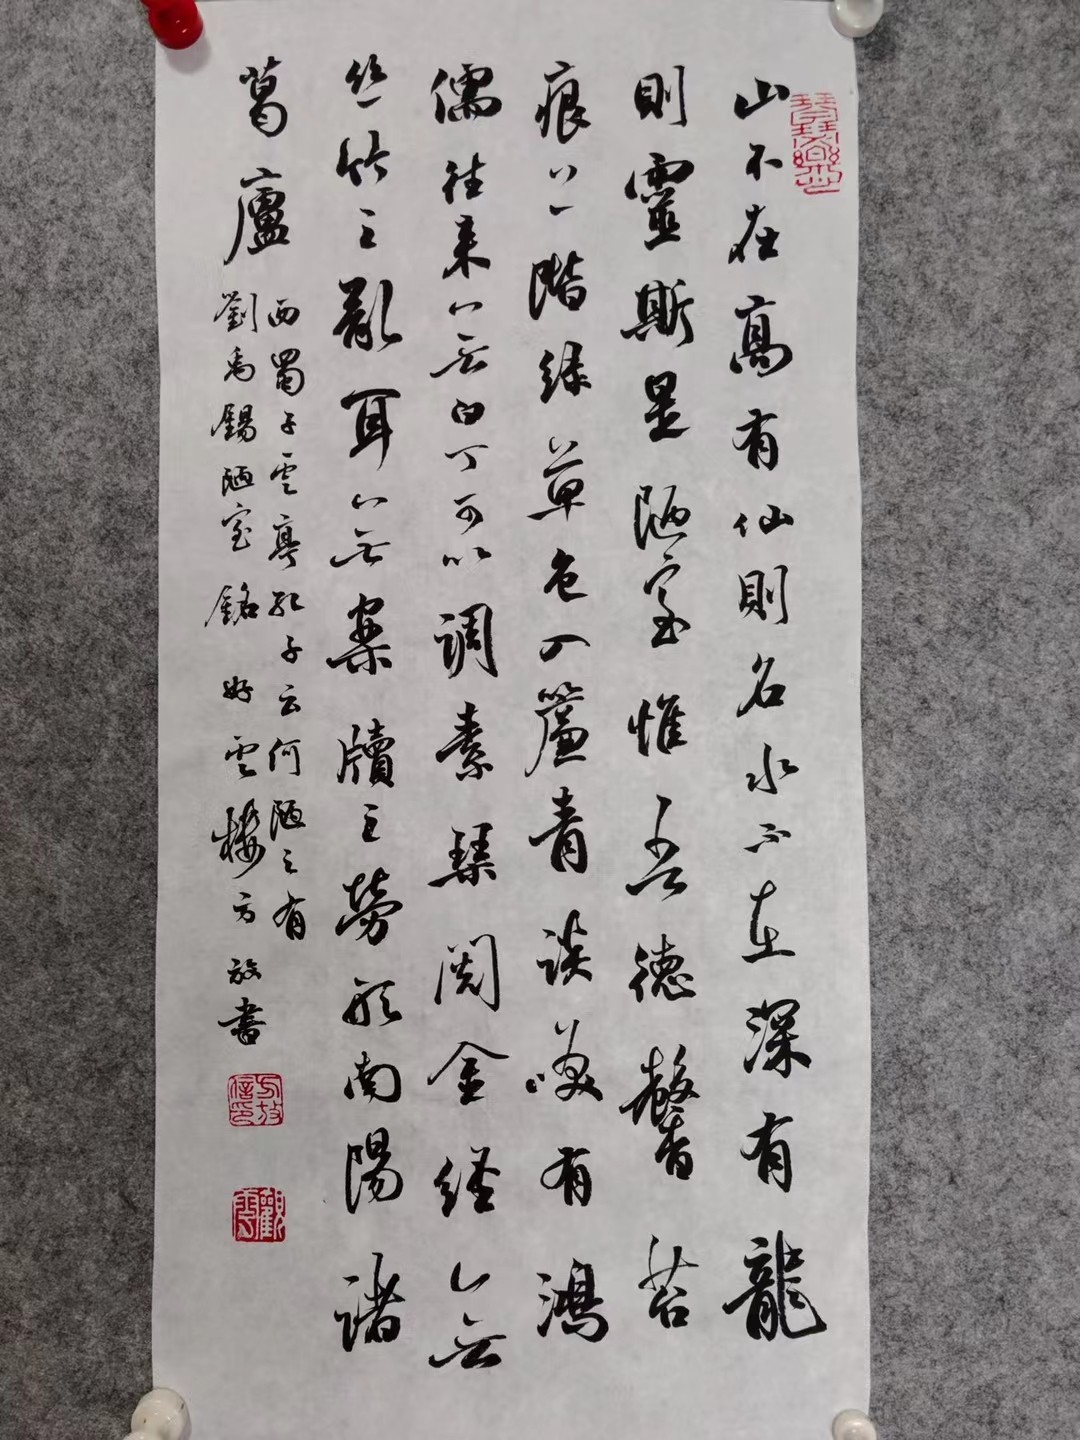 山不在高有仙則名水不在深有龍
則靈斯是陋室惟吾德馨苔
痕上階緑草色入簾青談笑有鴻
儒往来無白丁可以調素琴閱金經無
丝竹之亂耳無案牘之勞形南陽諸
葛廬
西蜀子雲亭孔子云何陋之有
劉禹錫陋室銘 好雲樓方放書
方放信印